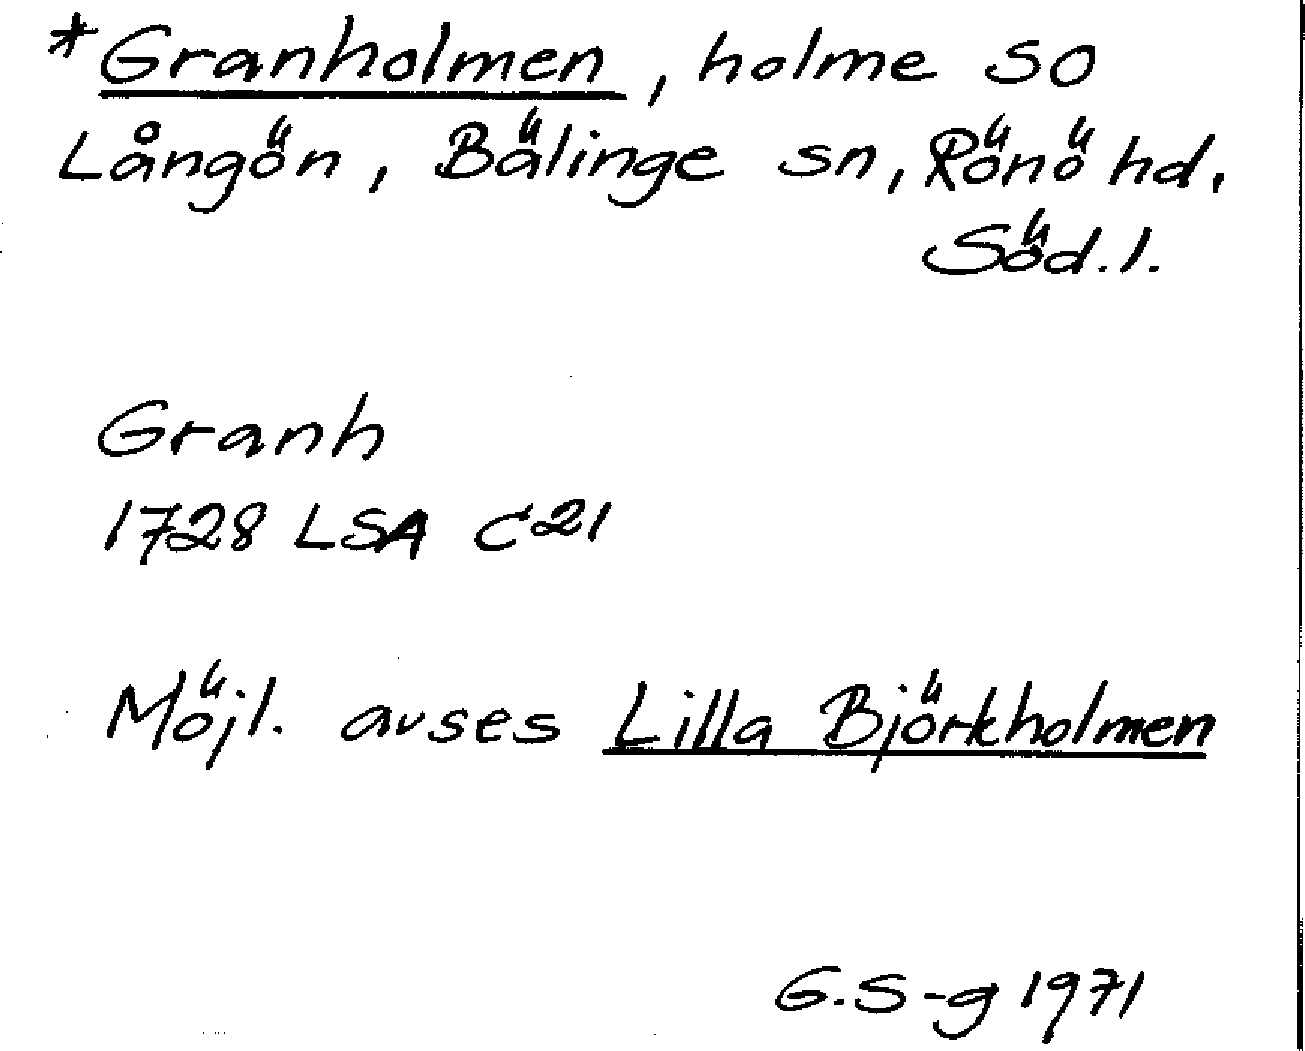 *Granholmen, holme SO
Långön, Bälinge sn, Rönö hd.
Söd.l.
Granh
1728 LSA C21
Möjl. avses Lilla Björkholmen
G.S-g 1971